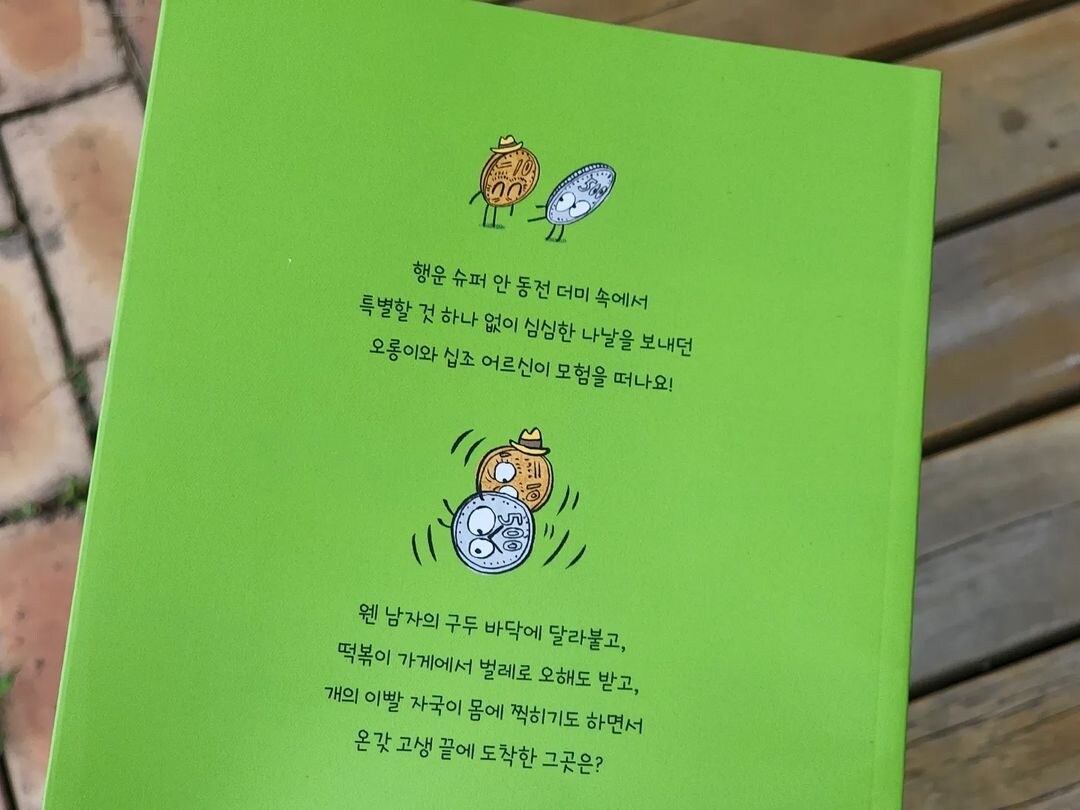 10
500
행운 슈퍼 안 동전 더미 속에서
특별할 것 하나 없이 심심한 나날을 보내던
오롱이와 십조 어르신이 모험을 떠나요!
10
500
웬 남자의 구두 바닥에 달라붙고,
떡볶이 가게에서 벌레로 오해도 받고,
개의 이빨 자국이 몸에 찍히기도 하면서
온갖 고생 끝에 도착한 그곳은?